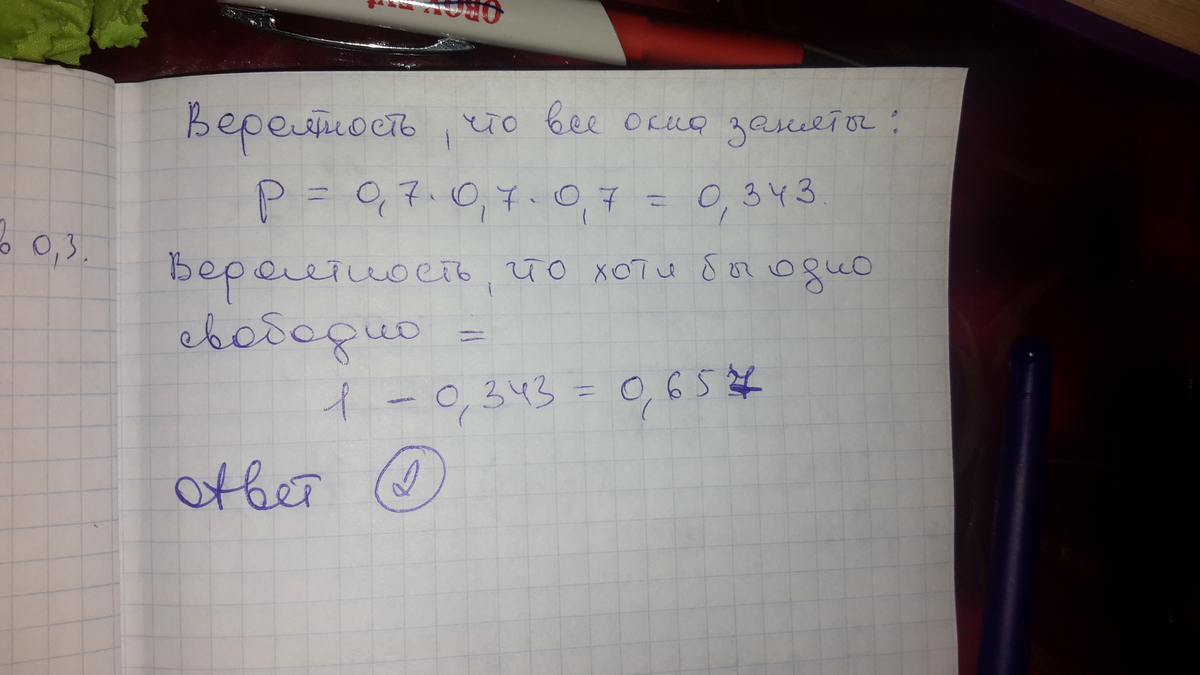 Вероятность, что все окна заняты:
P = 0,7 · 0,7 · 0,7 = 0,343.
в 0,3.
Вероятность, что хотя бы одно
свободно =
1 - 0,343 = 0,657
Ответ 2